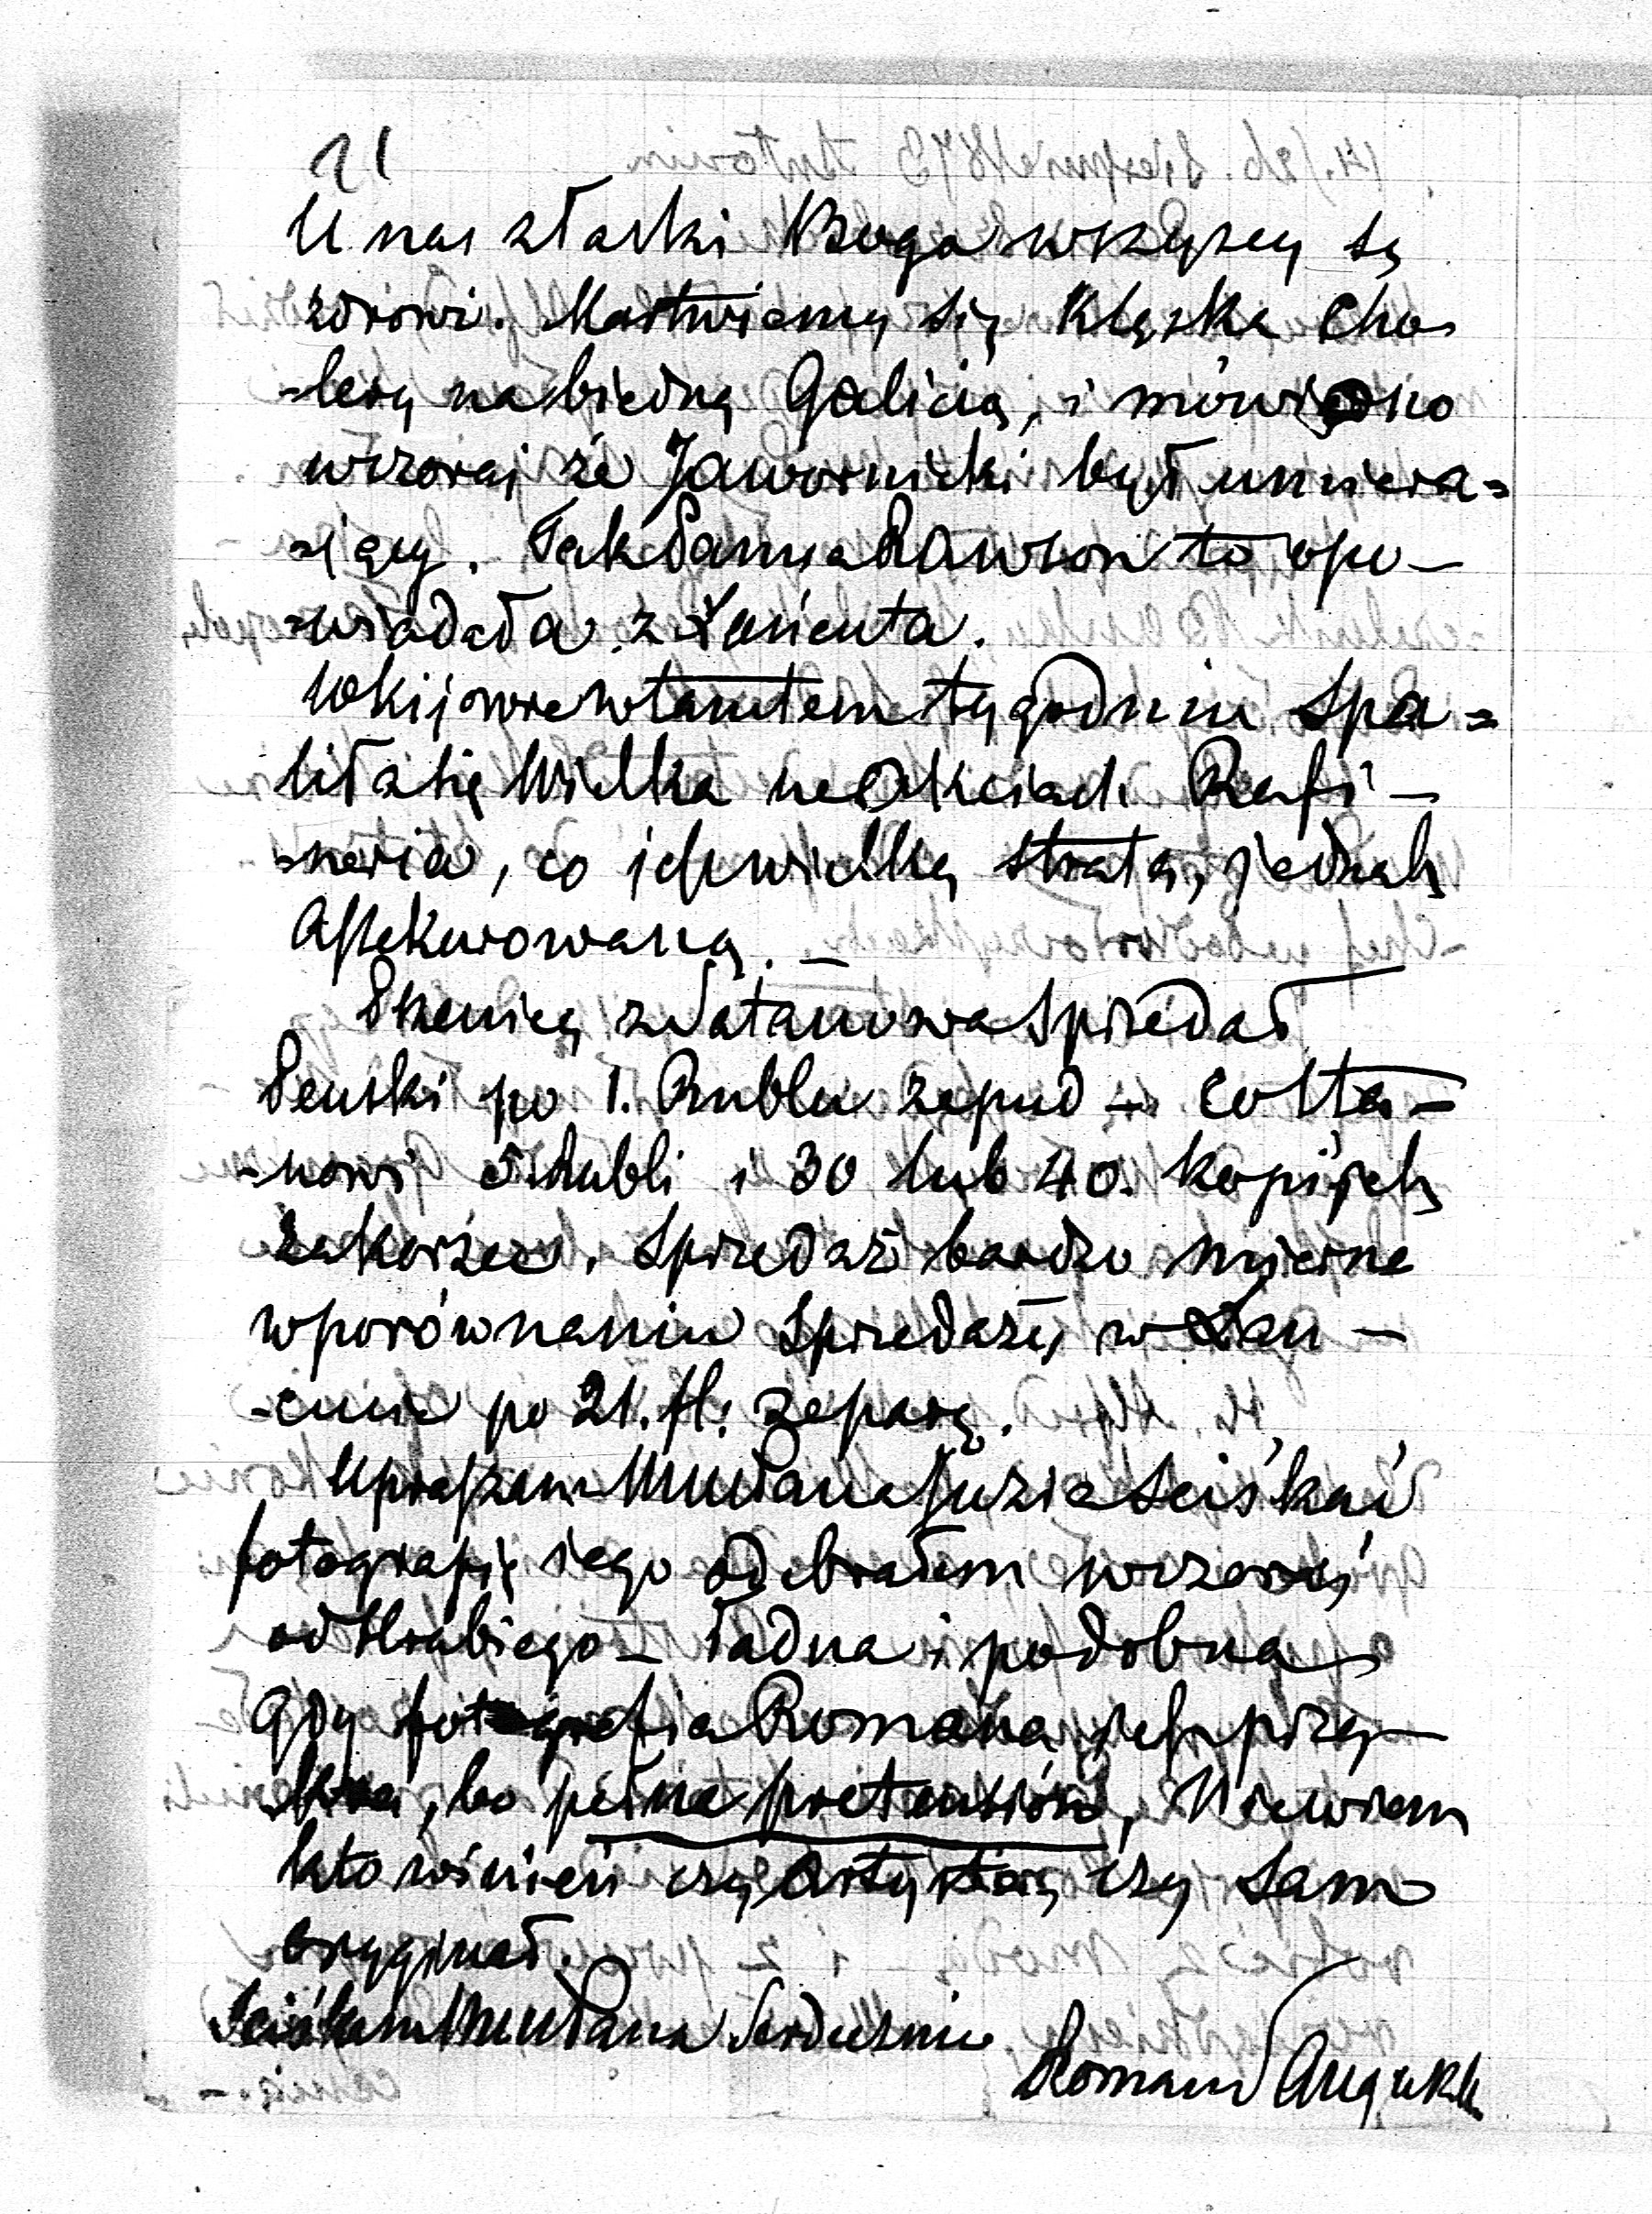 21
U nas z łaski Boga wszyscy są
zdrowi. Martwiemy się klęską Cho-
-lery na biedną Galicią, i mówiono
wczoraj że Jawornicki był umiera=
-iący. Tak Pania Rawson to opo-
-wiadała z Łańcuta.
W Kijowie w tamtem tygodniu spa=
liła się Wielka na Rafi-
-neria, co jest wielką stratą, jednak
Assekurowaną. —
Pszenicę z Satanowa sprzedał
Penski po 1. Rublu za pud — co sta-
-nowi 8. Rubli i 30 lub 40. kopijek
za korzec. Sprzedaż bardzo mierna
w porównaniu sprzedaży w Łan-
-cucie po 21. fl. za parę.
Upraszam WMuPana Józia sciskać
fotografię iego odebrałem wczoraj
od Hrabiego — ładna i podobna
Gdy fotografia Romana jest przy-
-kra, bo pełna pretensiów, Niewiem
kto winien czy Artysta, czy sam
oryginał.
Sciskam WMuPana Serdecznie
Roman Sanguszko